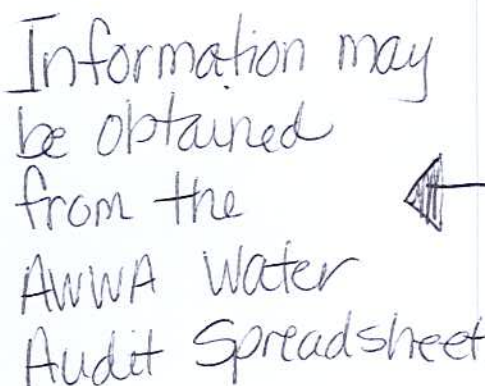 Information may
be obtained
from the
AWWA Water
Audit Spreadsheet